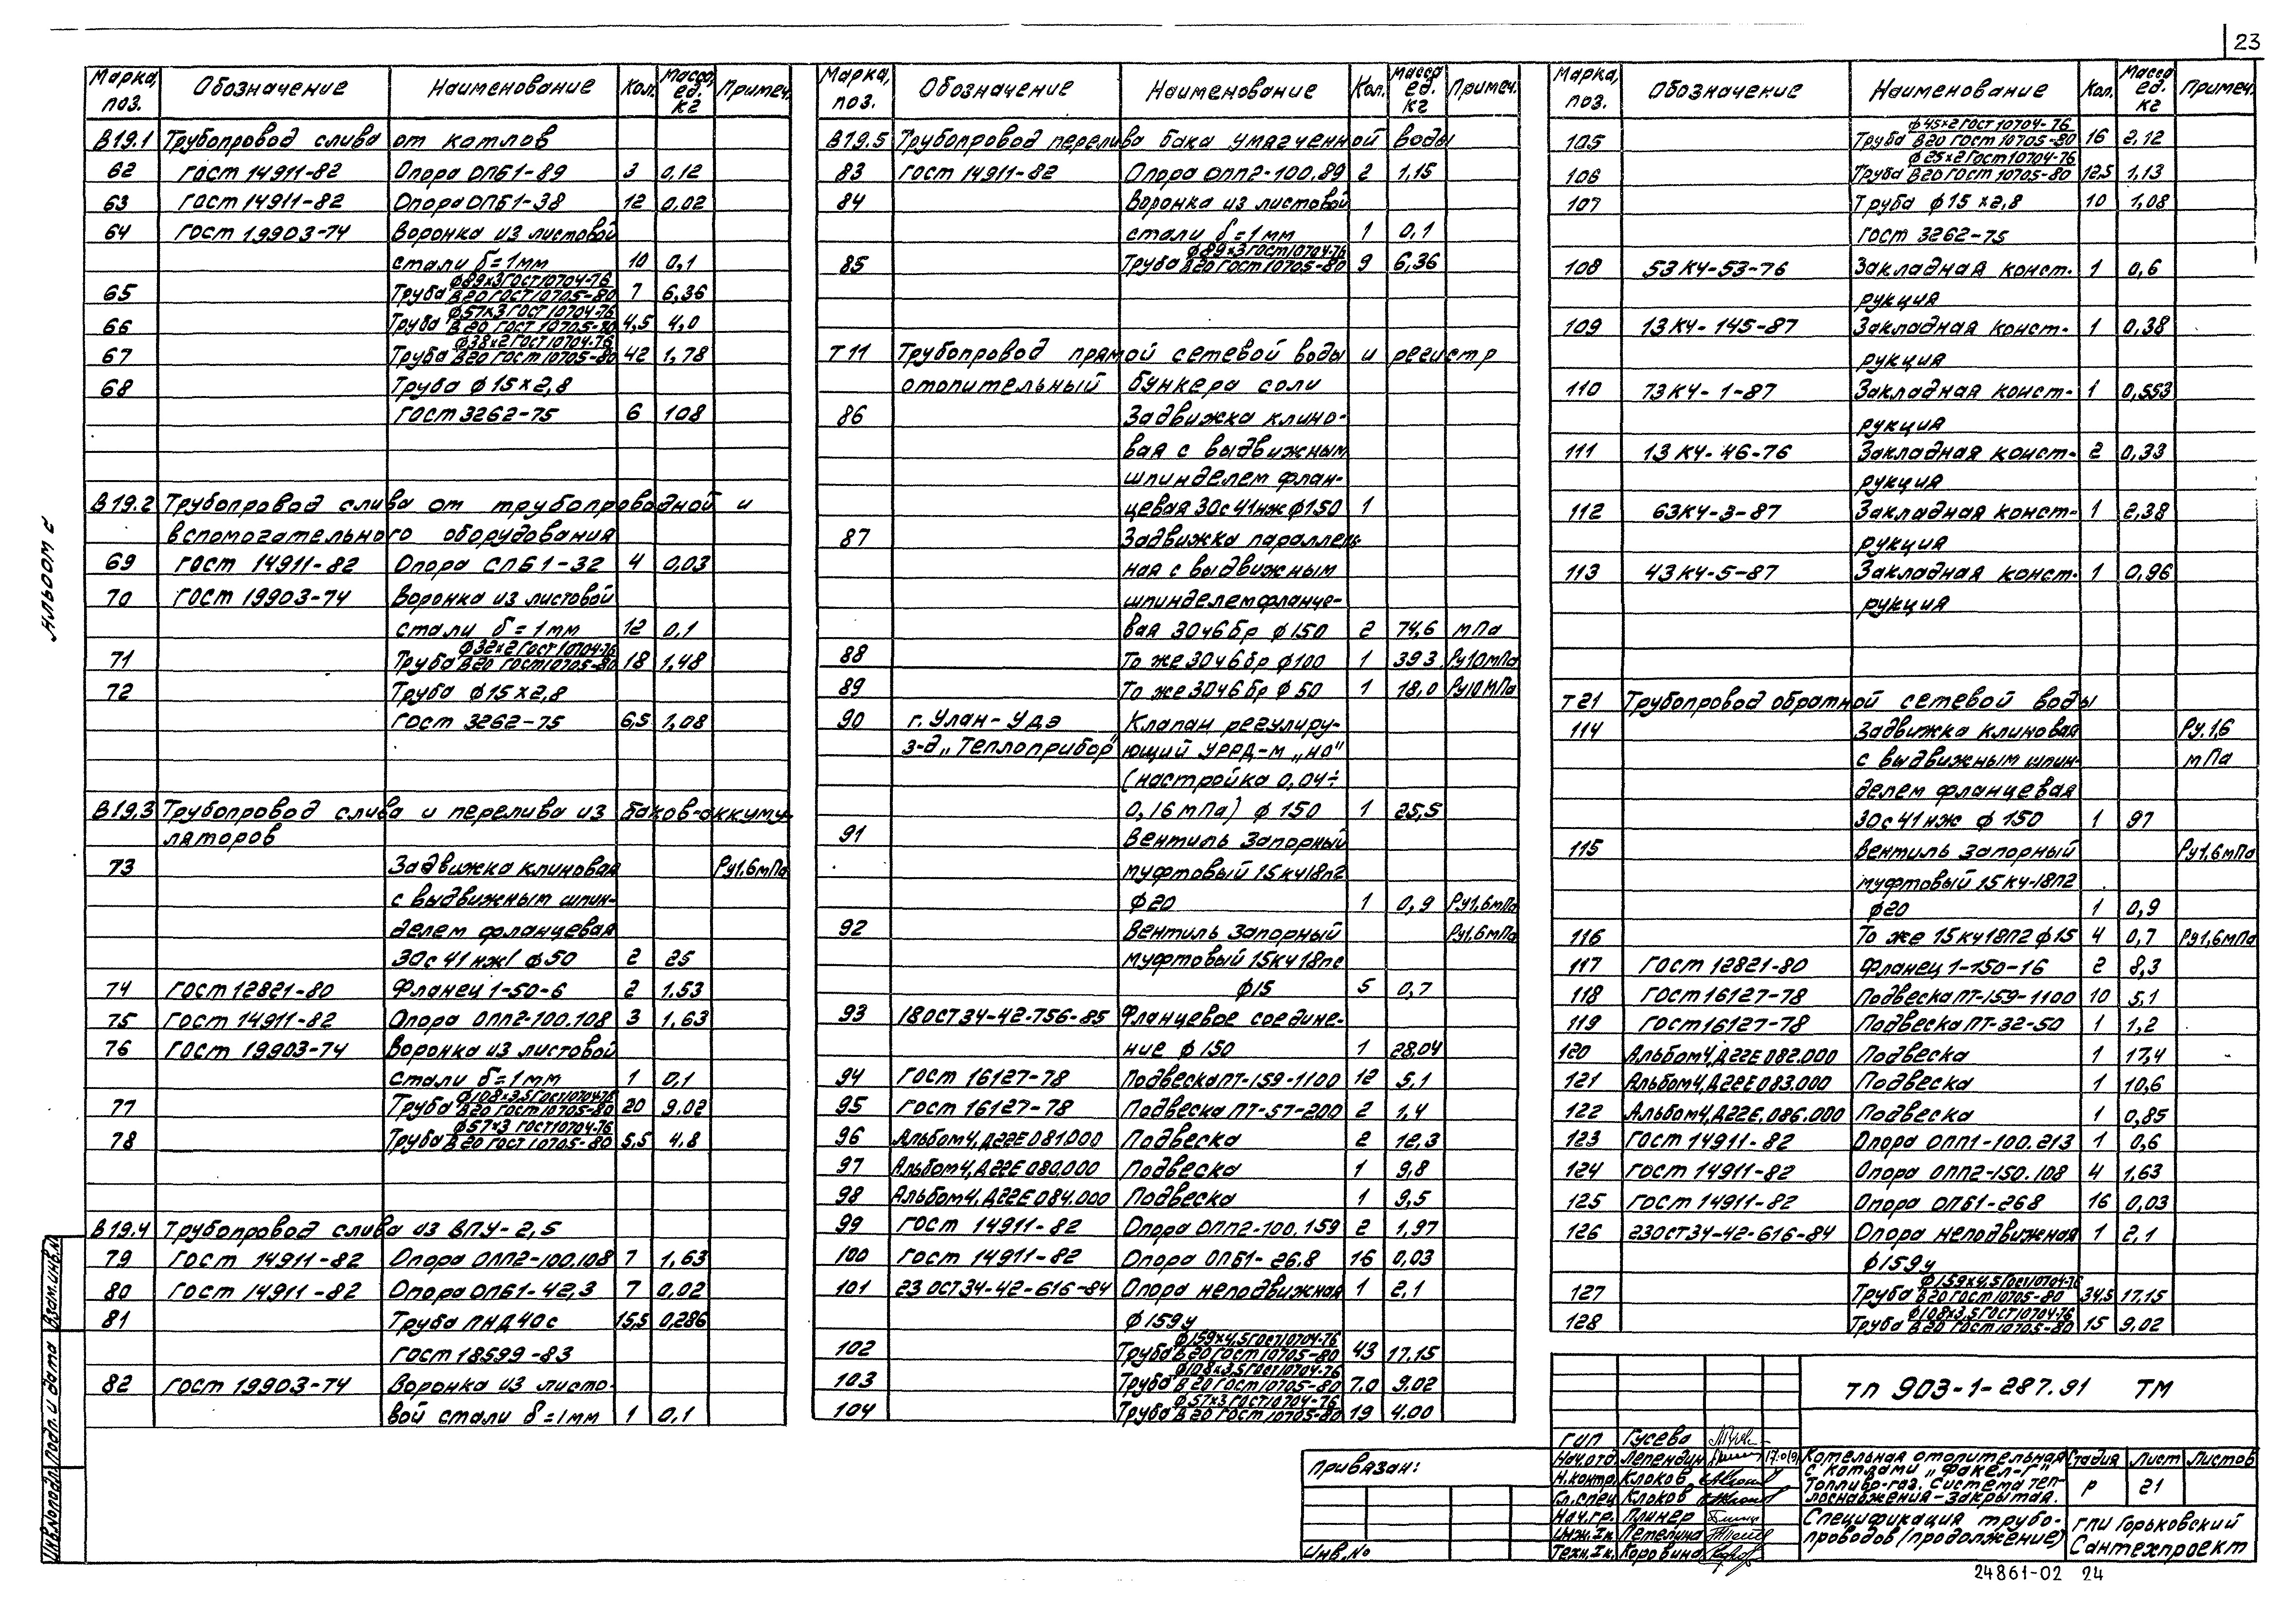 23
Марка, поз. Обозначение Наименование Кол. Масса ед. кг Примеч.
В19.1 Трубопровод слива от котлов
62 ГОСТ 14911-82 Опора ОПБ1-89 3 0,12
63 ГОСТ 14911-82 Опора ОПБ1-38 12 0,02
64 ГОСТ 19903-74 Воронка из листовой
стали б=1мм 10 0,1
65 Труба ф89х3 ГОСТ 10704-76 / В20 ГОСТ 10705-80 7 6,36
66 Труба ф57х3 ГОСТ 10704-76 / В20 ГОСТ 10705-80 4,5 4,0
67 Труба ф38х2 ГОСТ 10704-76 / В20 ГОСТ 10705-80 42 1,78
68 Труба ф15х2,8
ГОСТ 3262-75 6 108
В19.2 Трубопровод слива от трубопроводной и
вспомогательного оборудования
69 ГОСТ 14911-82 Опора СПБ1-32 4 0,03
70 ГОСТ 19903-74 Воронка из листовой
стали б=1мм 12 0,1
71 Труба ф32х2 ГОСТ 10704-76 / В20 ГОСТ 10705-80 18 1,48
72 Труба ф15х2,8
ГОСТ 3262-75 6,5 1,08
В19.3 Трубопровод слива и перелива из баков-аккуму-
ляторов
73 Задвижка клиновая Ру1,6мПа
с выдвижным шпин-
делем фланцевая
30с41нж1 ф50 2 25
74 ГОСТ 12821-80 Фланец 1-50-6 2 1.53
75 ГОСТ 14911-82 Опора ОПП2-100.108 3 1,63
76 ГОСТ 19903-74 Воронка из листовой
стали б=1мм 1 0,1
77 Труба ф108х3,5 ГОСТ 10704-76 / В20 ГОСТ 10705-80 20 9.02
78 Труба ф57х3 ГОСТ 10704-76 / В20 ГОСТ 10705-80 5,5 4.8
В19.4 Трубопровод слива из ВПУ-2,5
79 ГОСТ 14911-82 Опора ОПП2-100.108 7 1,63
80 ГОСТ 14911-82 Опора ОПБ1-42,3 7 0,02
81 Труба ПНД40с 15,5 0,286
ГОСТ 18599-83
82 ГОСТ 19903-74 Воронка из листо-
вой стали б=1мм 1 0,1
Марка, поз. Обозначение Наименование Кол. Масса ед. кг Примеч.
В19.5 Трубопровод перелива бака умягченной воды
83 ГОСТ 14911-82 Опора ОПП2-100.89 2 1,15
84 Воронка из листовой
стали б=1мм 1 0.1
85 Труба ф89х3 ГОСТ 10704-76 / В20 ГОСТ 10705-80 9 6,36
Т11 Трубопровод прямой сетевой воды и регистр
отопительный бункера соли
86 Задвижка клино-
вая с выдвижным
шпинделем флан-
цевая 30с41нж ф150 1
87 Задвижка параллель-
ная с выдвижным
шпинделем фланце-
вая 30ч6бр ф150 2 74,6 мПа
88 То же 30ч6бр ф100 1 39 3 Ру10мПа
89 То же 30ч6бр ф50 1 18,0 Ру10МПа
90 г. Улан-Удэ Клапан регулиру-
з-д „Теплоприбор" ющий УРРД-М „НО"
(настройка 0,04÷
0,16мПа) ф150 1 25,5
91 Вентиль запорный
муфтовый 15кч18п2
ф20 1 0,9 Ру1,6мПа
92 Вентиль запорный Ру1,6мПа
муфтовый 15кч18п2
ф15 5 0,7
93 18ОСТ34-42-756-85 Фланцевое соедине-
ние ф150 1 28,04
94 ГОСТ 16127-78 Подвеска ПТ-159-1100 12 5,1
95 ГОСТ 16127-78 Подвеска ПТ-57-200 2 1,4
96 Альбом 4, Д22Е081.000 Подвеска 2 12,3
97 Альбом 4, Д22Е080.000 Подвеска 1 9,8
98 Альбом 4, Д22Е084.000 Подвеска 1 9,5
99 ГОСТ 14911-82 Опора ОПП2-100.159 2 1,97
100 ГОСТ 14911-82 Опора ОПБ1-26.8 16 0,03
101 23 ОСТ34-42-616-84 Опора неподвижная 1 2,1
ф159у
102 Труба ф159х4,5 ГОСТ 10704-76 / В20 ГОСТ 10705-80 43 17.15
103 Труба ф108х3,5 ГОСТ 10704-76 / В20 ГОСТ 10705-80 7.0 9.02
104 Труба ф57х3 ГОСТ 10704-76 / В20 ГОСТ 10705-80 19 4.00
Марка, поз. Обозначение Наименование Кол. Масса ед. кг Примеч.
105 Труба ф45х2 ГОСТ 10704-76 / В20 ГОСТ 10705-80 16 2,12
106 Труба ф25х2 ГОСТ 10704-76 / В20 ГОСТ 10705-80 12,5 1,13
107 Труба ф15х2,8 10 1,08
ГОСТ 3262-75
108 53КЧ-53-76 Закладная конст- 1 0,6
рукция
109 13КЧ-145-87 Закладная конст- 1 0,38
рукция
110 73КЧ-1-87 Закладная конст- 1 0,553
рукция
111 13КЧ-46-76 Закладная конст- 2 0,33
рукция
112 63КЧ-3-87 Закладная конст- 1 2,38
рукция
113 43КЧ-5-87 Закладная конст- 1 0,96
рукция
Т21 Трубопровод обратной сетевой воды
114 Задвижка клиновая Ру.1,6
с выдвижным шпин- мПа
делем фланцевая
30с41нж ф150 1 97
115 Вентиль запорный Ру1,6мПа
муфтовый 15кч-18п2
ф20 1 0,9
116 То же 15кч18п2 ф15 4 0,7 Ру1,6мПа
117 ГОСТ 12821-80 Фланец 1-150-16 2 8,3
118 ГОСТ 16127-78 Подвеска ПТ-159-1100 10 5,1
119 ГОСТ 16127-78 Подвеска ПТ-32-50 1 1,2
120 Альбом 4, Д22Е082.000 Подвеска 1 17,4
121 Альбом 4, Д22Е083.000 Подвеска 1 10,6
122 Альбом 4, Д22Е.086.000 Подвеска 1 0,85
123 ГОСТ 14911-82 Опора ОПП1-100.213 1 0,6
124 ГОСТ 14911-82 Опора ОПП2-150.108 4 1,63
125 ГОСТ 14911-82 Опора ОПБ1-268 16 0,03
126 23ОСТ34-42-616-84 Опора неподвижная 1 2,1
ф159у
127 Труба ф159х4,5 ГОСТ 10704-76 / В20 ГОСТ 10705-80 34,5 17.15
128 Труба ф108х3,5 ГОСТ 10704-76 / В20 ГОСТ 10705-80 15 9,02
Альбом 2
Взам.инв.№
Подп. и дата
Инв.№ подл.
Привязан:
Инв.№
тп 903-1-287.91 ТМ
ГИП Гусева
Нач.отд. Лепендин
Н.контр. Клоков
Гл.спец Клоков
Нач.гр. Плинер
Инж.Iк.
Техн.Iк. Коровина
Котельная отопительная
с котлами „Факел-Г"
Топливо-газ. Система теп-
лоснабжения-закрытая.
Стадия Лист Листов
Р 21
Спецификация трубо-
проводов (продолжение)
ГПИ Горьковский
Сантехпроект
24861-02 24